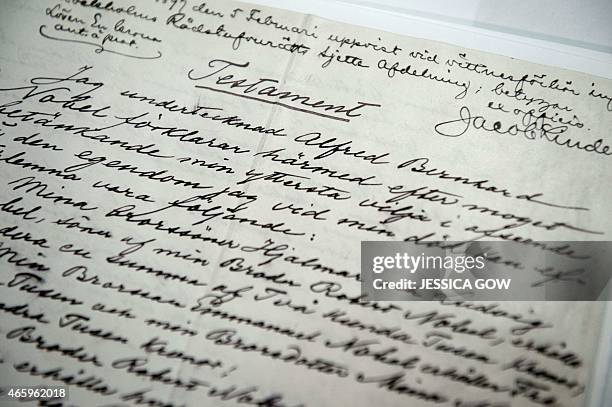 1897 den 5 Februari uppvist vid vittnesförhör in
Stockholms Rådstufvurätts sjette Afdelning; betygar
Lösen En krona
ex officio
Testament
Jag undertecknad Alfred Bernhard
Nobel förklarar härmed efter moget
betänkande min yttersta vilja i afseende
å den egendom jag vid min död kan ef-
terlemna vara följande:
Mina Brorsöner Hjalmar och Ludvig
söner af min Broder Robert Nobel, erhålla
en Summa af Två Hundra Tusen Kronor;
Min Brorson Emmanuel Nobel erhåller Tre
Tusen och min Brorsdotter Mina
Tusen Kronor;
Broder Robert
erhålla
gettyimages
JESSICA GOW
465962018